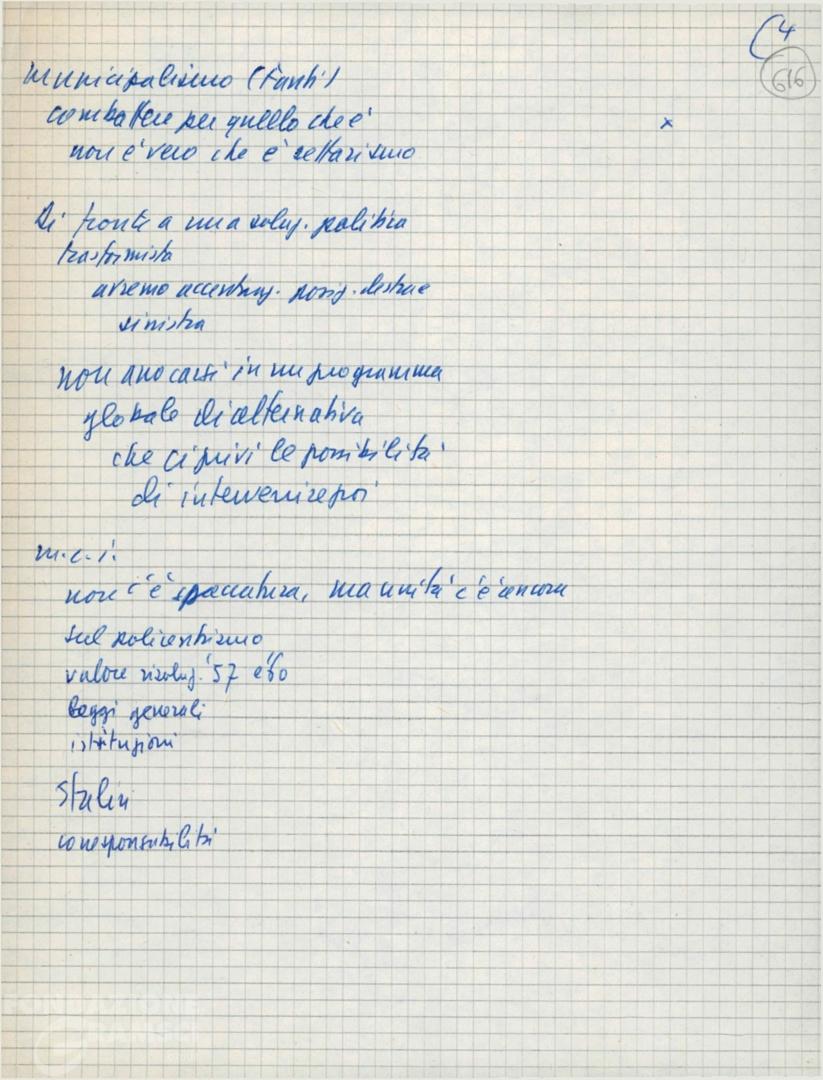 4
616
municipalismo (Fanti)
combattere per quello che è
x
non è vero che è settarismo
Di fronte a una soluz. politica
trasformista
avremo accentuaz. posiz. destra e
sinistra
non arrocarsi in un programma
globale di alternativa
che ci privi le possibilità
di intervenire poi
m.c.i.
non c'è spaccatura, ma unità c'è ancora
sul policentrismo
valore risoluz. '57 e '60
leggi generali
istituzioni
Stalin
corresponsabilità
FONDAZIONE
GRAMSCI